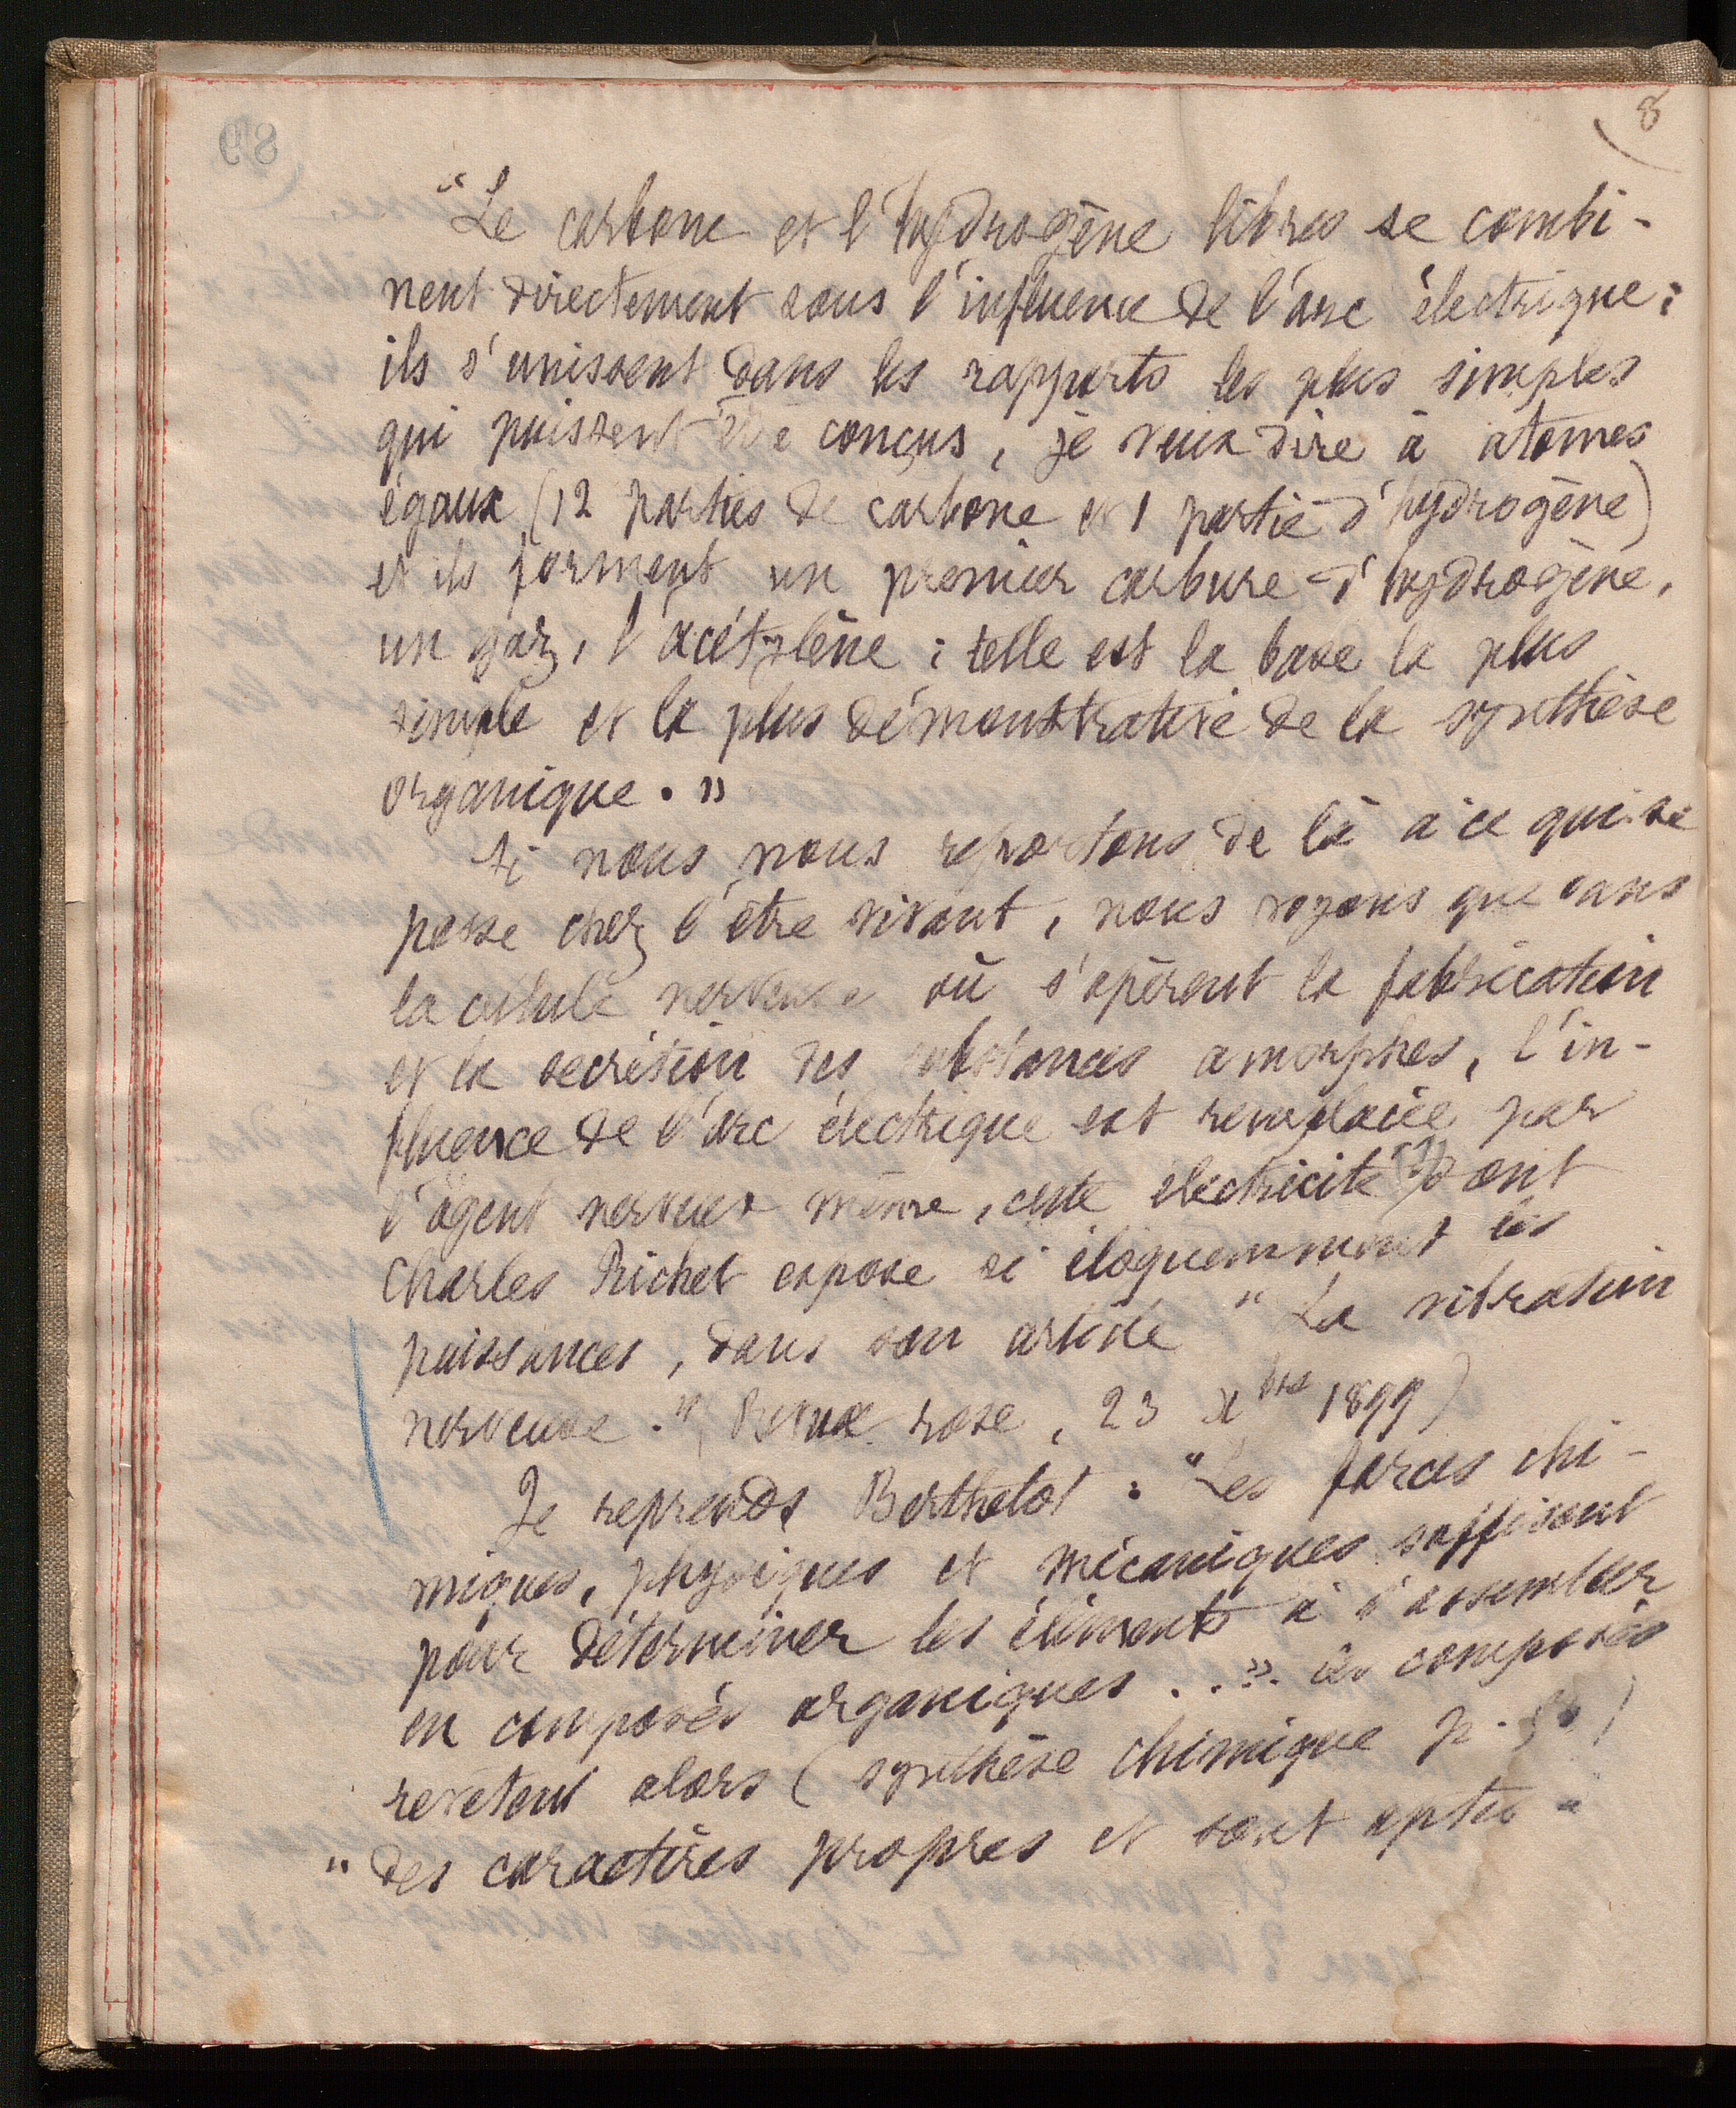 8
"Le carbone et l'hydrogène libres se combi-
nent directement sous l'influence de l'arc électrique :
ils s'unissent dans les rapports les plus simples
qui puissent être conçus, je veux dire à atomes
égaux (12 parties de carbone et 1 partie d'hydrogène)
et ils forment un premier carbure d'hydrogène,
un gaz, l'acétylène : telle est la base la plus
simple et la plus démonstrative de la synthèse
organique. »
Si nous nous reportons de là à ce qui se
passe chez l'être vivant, nous voyons que dans
la cellule nerveuse où s'opèrent la fabrication
et la secrétion des substances amorphes, l'in-
fluence de l'arc électrique est remplacée par
l'agent nerveux même, cette électricité (?) dont
Charles Richet expose si éloquemment les
puissances, dans son article "La vibration
nerveuse." (Revue rose, 23 xbre 1899)
Je reprends Berthelot : "Les forces chi-
miques, physiques et mécaniques suffisent
pour déterminer les éléments à s'assembler
en composés organiques . . . » . ces composés
revêtent alors (synthèse chimique p.
"des caractères propres et sont aptes à